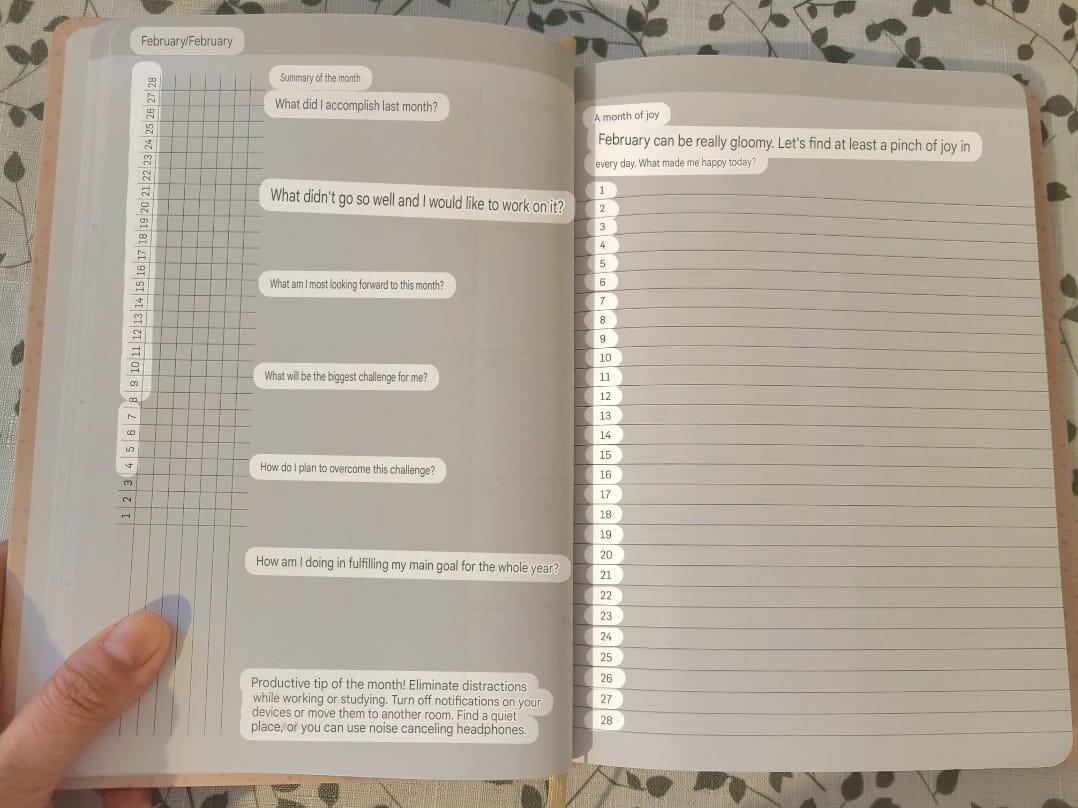 February/February
28
27
26
25
24
23
22
21
20
19
18
17
16
15
14
13
12
11
10
9
8
7
6
5
4
3
2
1
Summary of the month
What did I accomplish last month?
What didn't go so well and I would like to work on it?
What am I most looking forward to this month?
What will be the biggest challenge for me?
How do I plan to overcome this challenge?
How am I doing in fulfilling my main goal for the whole year?
Productive tip of the month! Eliminate distractions
while working or studying. Turn off notifications on your
devices or move them to another room. Find a quiet
place, or you can use noise canceling headphones.
A month of joy
February can be really gloomy. Let's find at least a pinch of joy in
every day. What made me happy today?
1
2
3
4
5
6
7
8
9
10
11
12
13
14
15
16
17
18
19
20
21
22
23
24
25
26
27
28